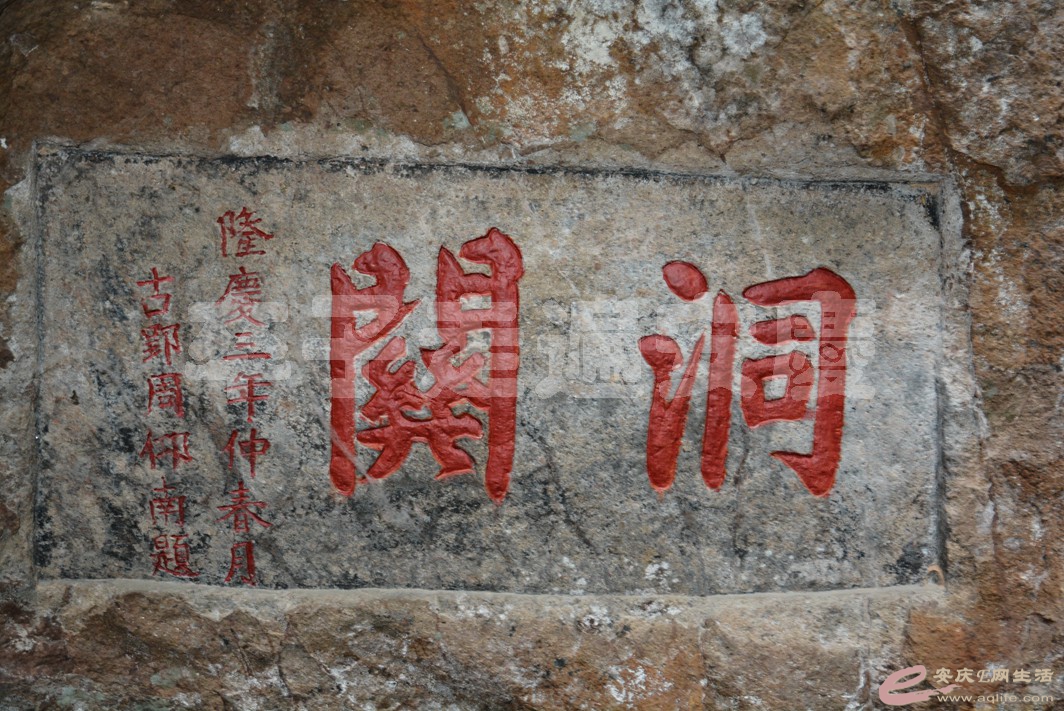 洞關
隆慶三年仲春月
古鄞周仰南題
安庆e网生活
www.aqlife.com